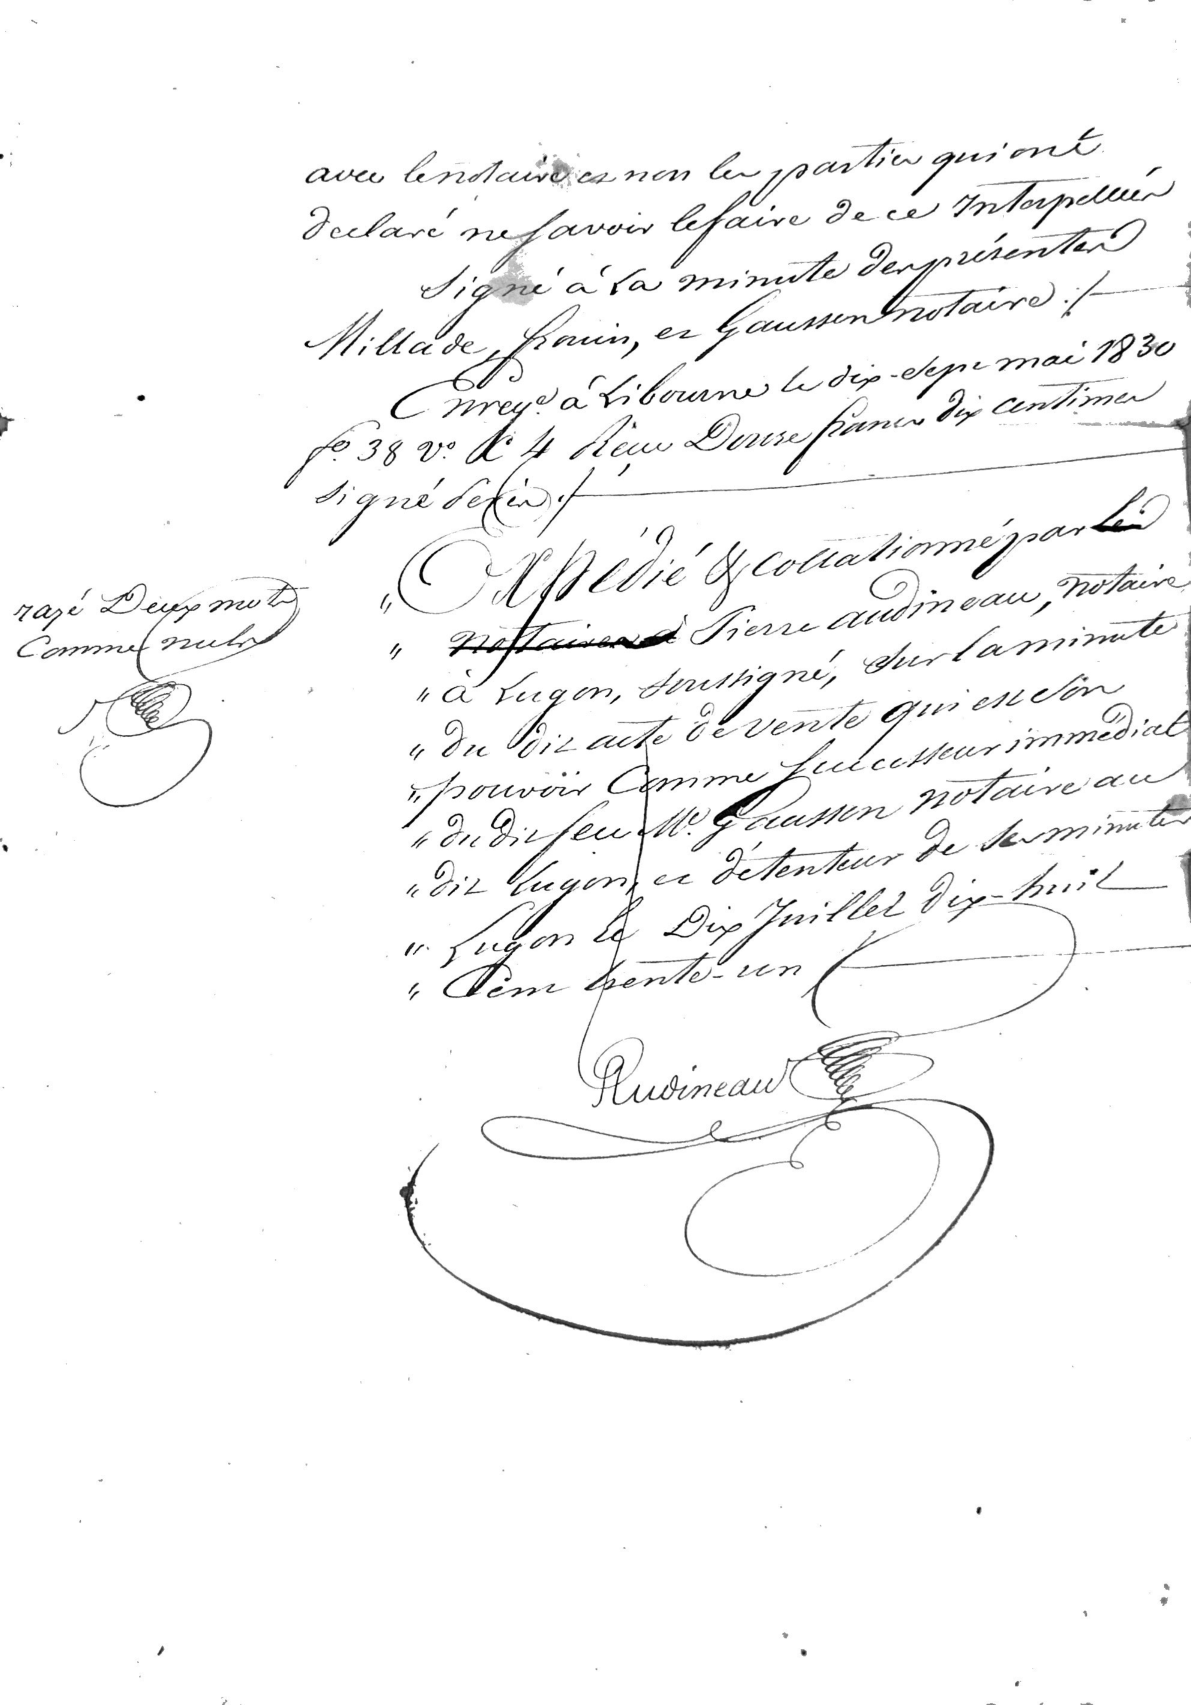 avec le notaire et non les parties qui ont
declaré ne savoir le faire de ce Interpellées
signé à La minute des présentes
Millade, frouin, et Gaussen notaire ./.
Enreg.é à Libourne le dix-sept mai 1830
f.o 38 v.o C 4 Reçu Douse francs dix centimes
signé ./.
" Expédié & collationné par les
" notaires à Pierre audineau, notaire
" à Lugon, soussigné, sur la minute
" du dit acte de vente qui est en son
" pouvoir Comme successeur immédiat
" du dit feu M.e Gaussen notaire au
" dit Lugon, et détenteur de ses minutes
" Lugon le Dix Juillet dix-huit
" Cent trente-un
razé Deux mots
Comme nuls
Audineau